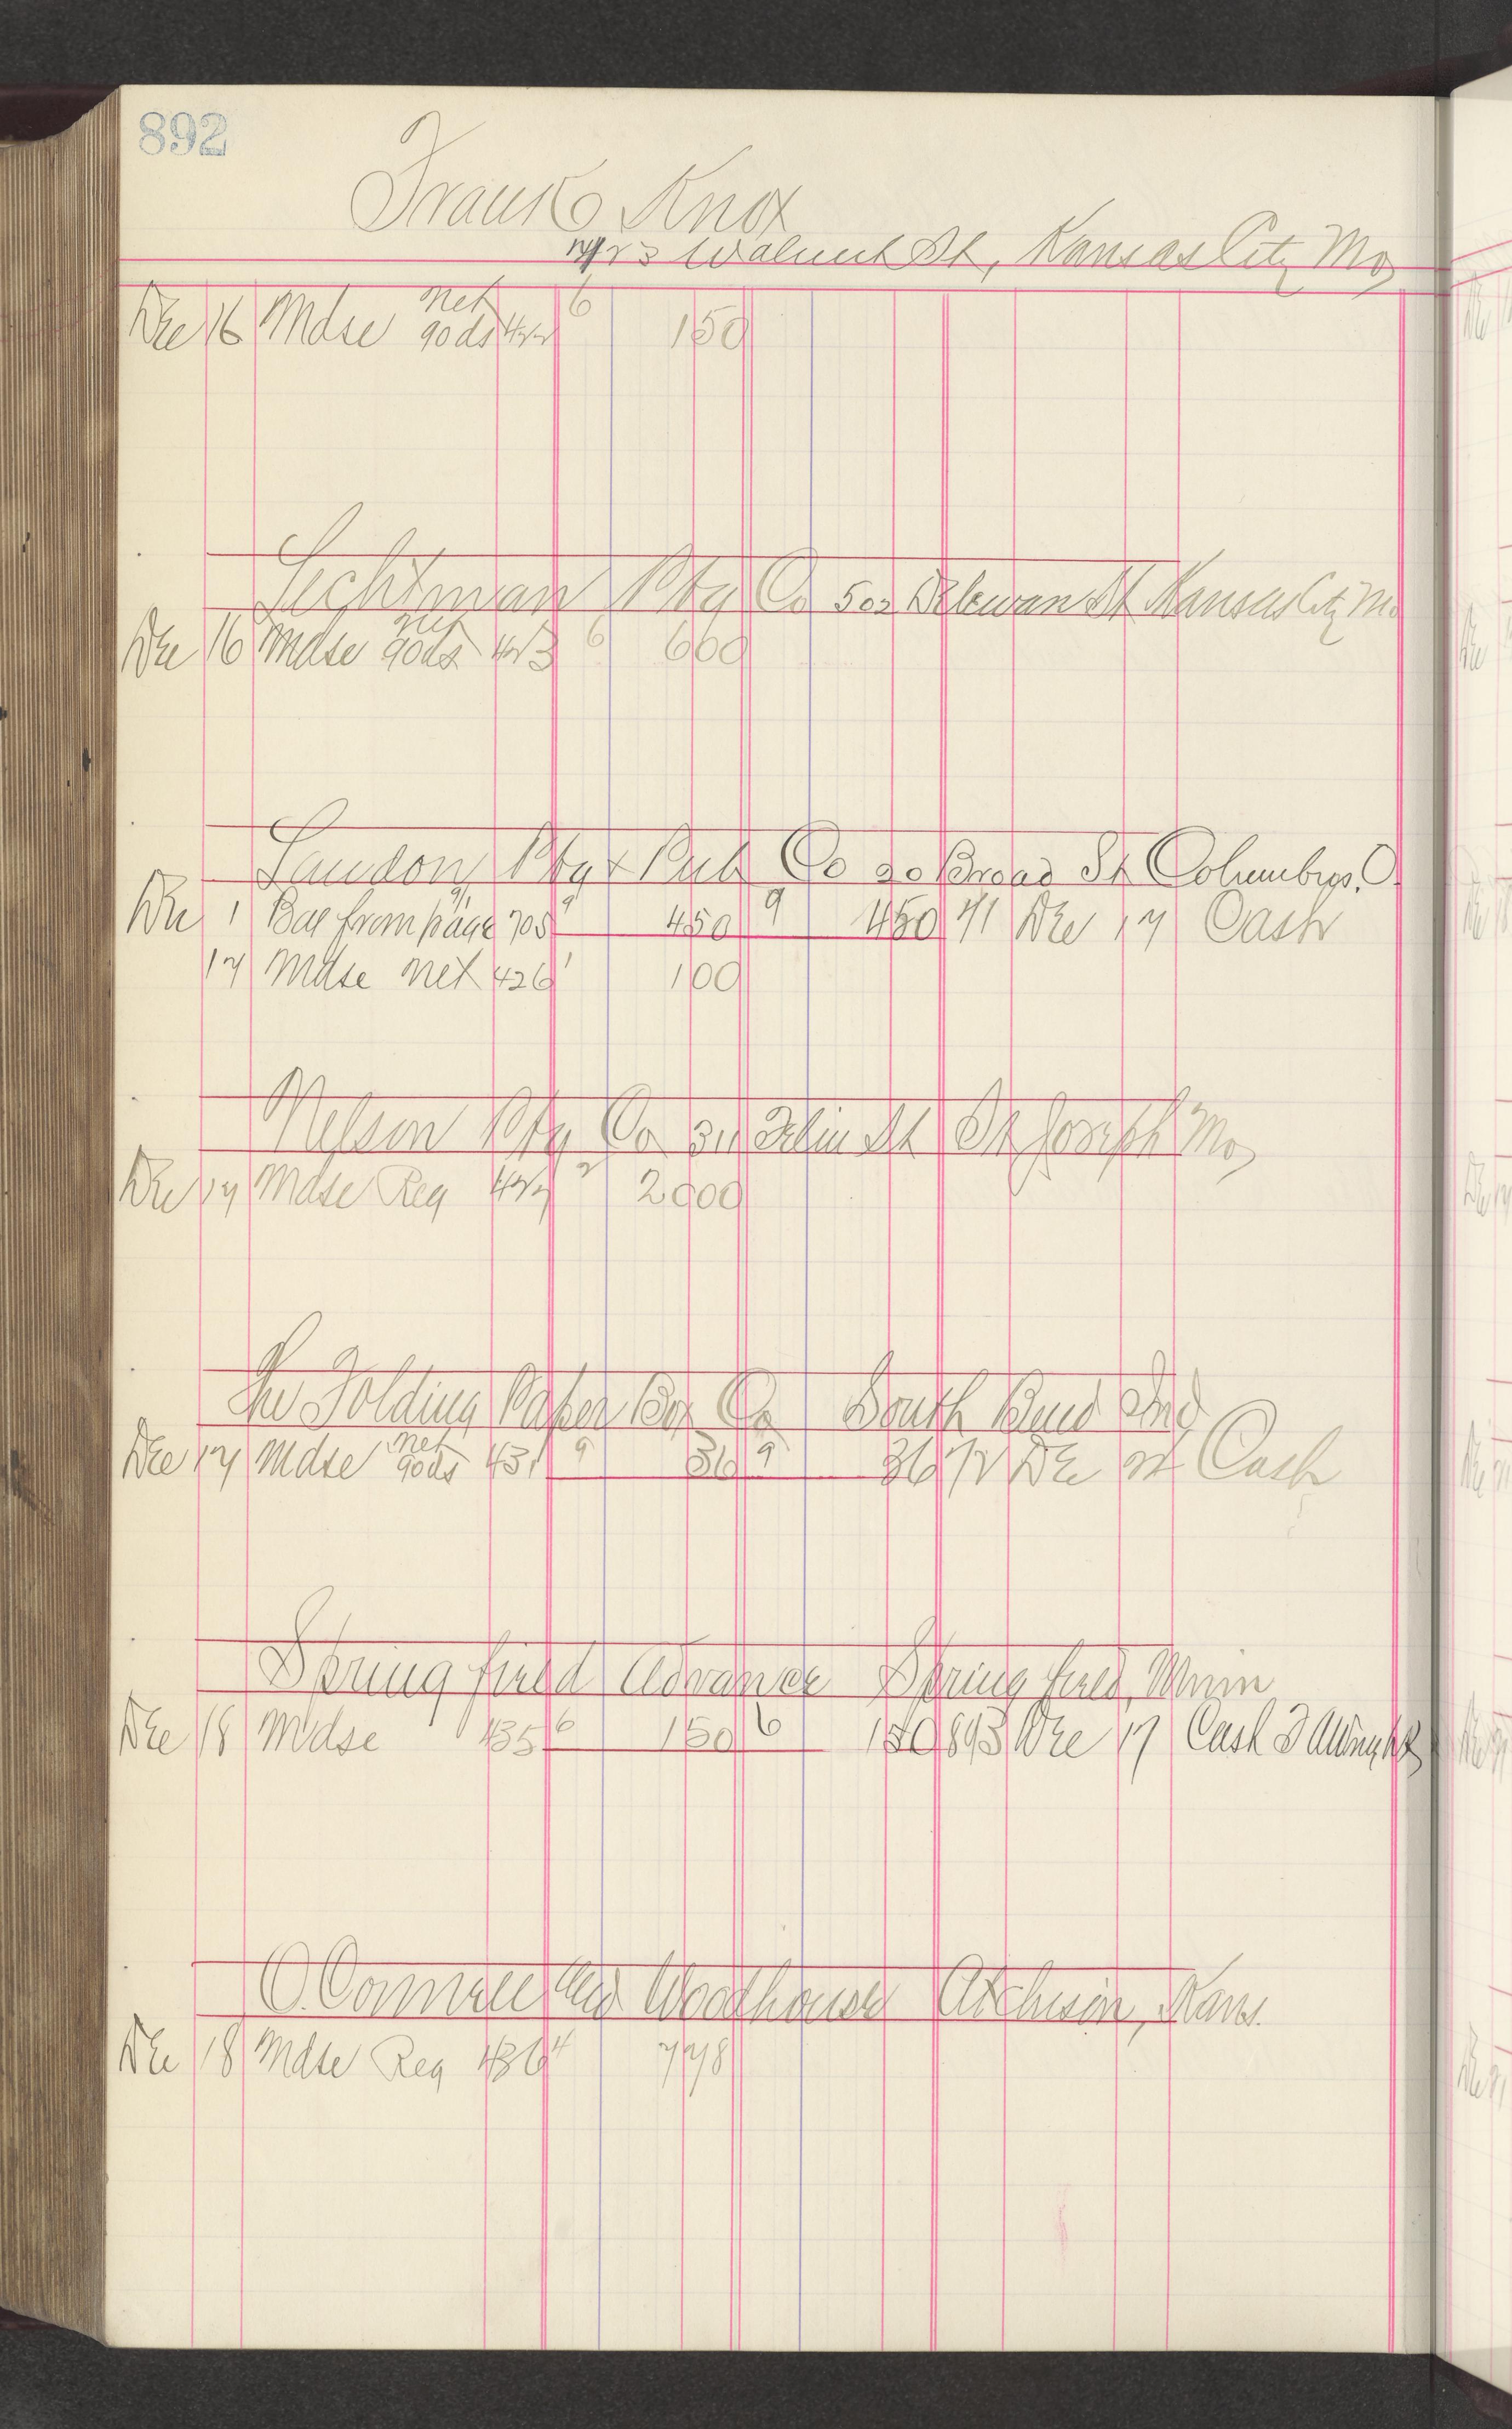 892
Frank Knox
Walnut St, Kansas City Mo
net
Dec 16 Mdse 90 ds 422 6 150
Lechtman Ptg Co 502 Delewan St Kansas City Mo
net
Dec 16 Mdse 90 ds 423 6 600
Landon Ptg & Pub Co 20 Broad St Columbus, O.
Dec 1 Bal from page 705 9 450 9 450 71 Dec 17 Cash
17 Mdse net 426 1 100
Nelson Ptg Co 311 St St Joseph Mo
Dec 17 Mdse Reg 427 2 2000
The Folding Paper Box Co South Bend Ind
net
Dec 17 Mdse 90 ds 431 9 36 9 36 72 Dec Cash
Springfield Advance Springfield, Minn
Dec 18 Mdse 435 6 150 6 150 893 Dec 17 Cash
O.Connell Woodhouse Atchison, Kans.
Dec 18 Mdse Reg 436 4 778